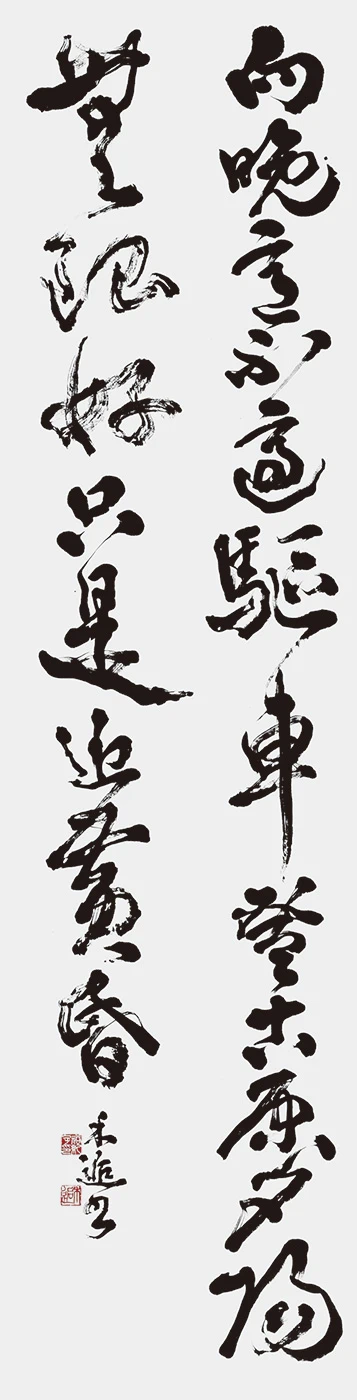 向晚意不適驅車登古原夕陽
無限好只是近黄昏
書